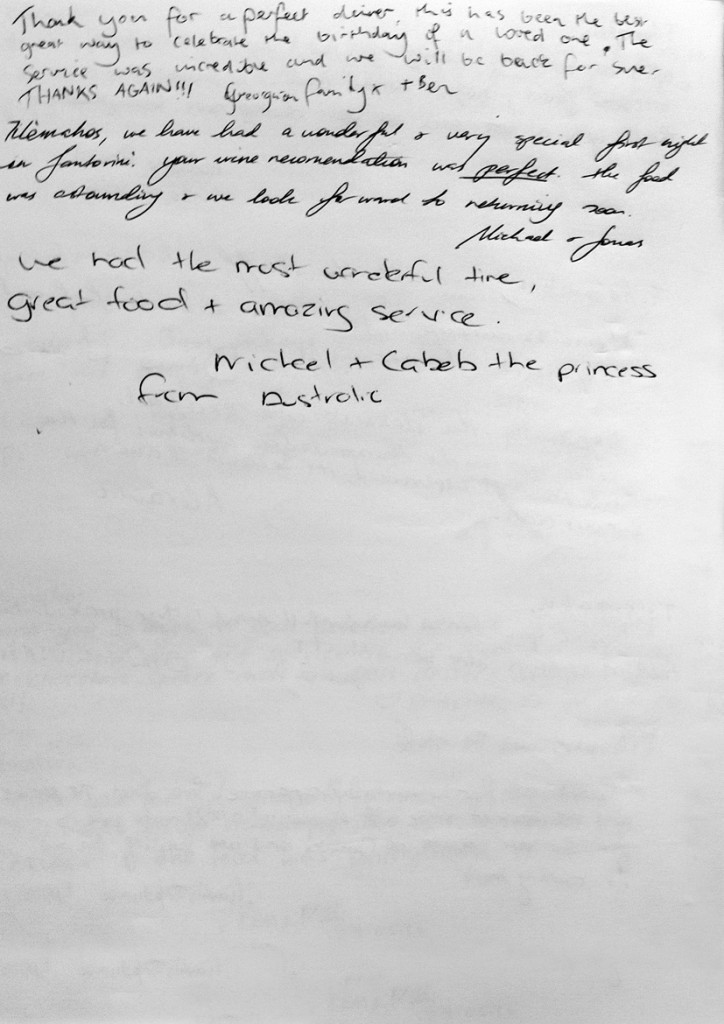 Thank you for a perfect dinner, this has been the best
great way to celebrate the birthday of a loved one. The
service was incredible and we will be back for sure.
THANKS AGAIN!!! Georgian family x + Ben
Tilemahos, we have had a wonderful & very special first night
in Santorini. your wine recomendation was perfect. the food
was astounding & we look forward to returning soon.
Michael & Jonas
we had the most wonderful time,
great food + amazing service.
Michael + Cabeb the princess
from Australia